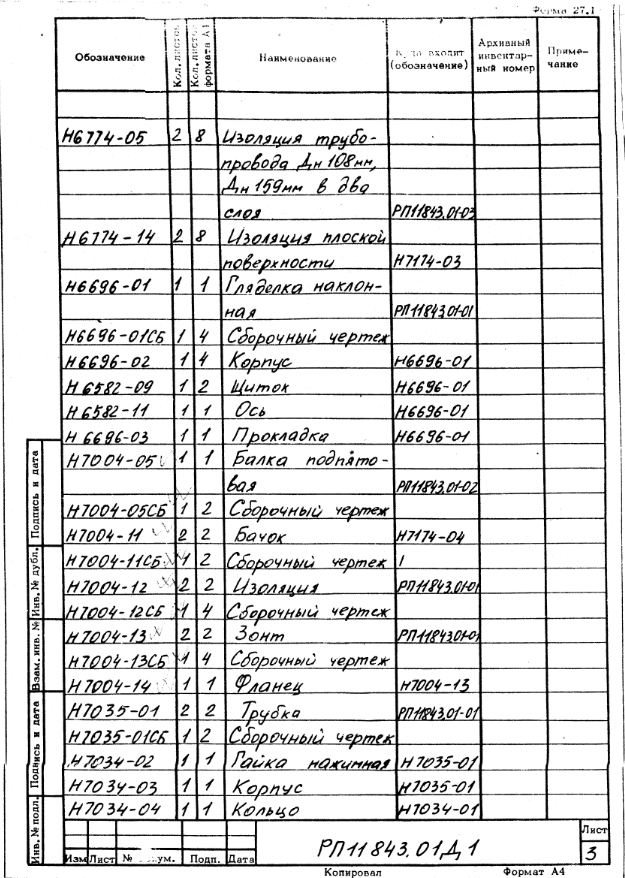 Форма 27.1
Обозначение Кол. листов Кол. листов формата А1 Наименование Куда входит (обозначение) Архивный инвентарный номер Примечание
Н6774-05 2 8 Изоляция трубо-
провода Дн 108мм,
Дн 159мм в два
слоя РП11843.01-03
Н6774-14 2 8 Изоляция плоской
поверхности Н7174-03
Н6696-01 1 1 Гляделка наклон-
ная РП11843.01-01
Н6696-01СБ 1 4 Сборочный чертеж
Н6696-02 1 4 Корпус Н6696-01
Н6582-09 1 2 Щиток Н6696-01
Н6582-11 1 1 Ось Н6696-01
Н6696-03 1 1 Прокладка Н6696-01
Н7004-05 1 1 Балка подпято-
вая РП11843.01-02
Н7004-05СБ 1 2 Сборочный чертеж
Н7004-11 2 2 Бачок Н7174-04
Н7004-11СБ 1 2 Сборочный чертеж
Н7004-12 2 2 Изоляция РП11843.01-01
Н7004-12СБ 1 4 Сборочный чертеж
Н7004-13 2 2 Зонт РП11843.01-01
Н7004-13СБ 1 4 Сборочный чертеж
Н7004-14 1 1 Фланец Н7004-13
Н7035-01 2 2 Трубка РП11843.01-01
Н7035-01СБ 1 2 Сборочный чертеж
Н7034-02 1 1 Гайка нажимная Н7035-01
Н7034-03 1 1 Корпус Н7035-01
Н7034-04 1 1 Кольцо Н7034-01
Инв. № подл. Подпись и дата Взам. инв. № Инв. № дубл. Подпись и дата
Изм Лист № Подп. Дата
РП11843.01Д1
Лист
3
Копировал Формат А4